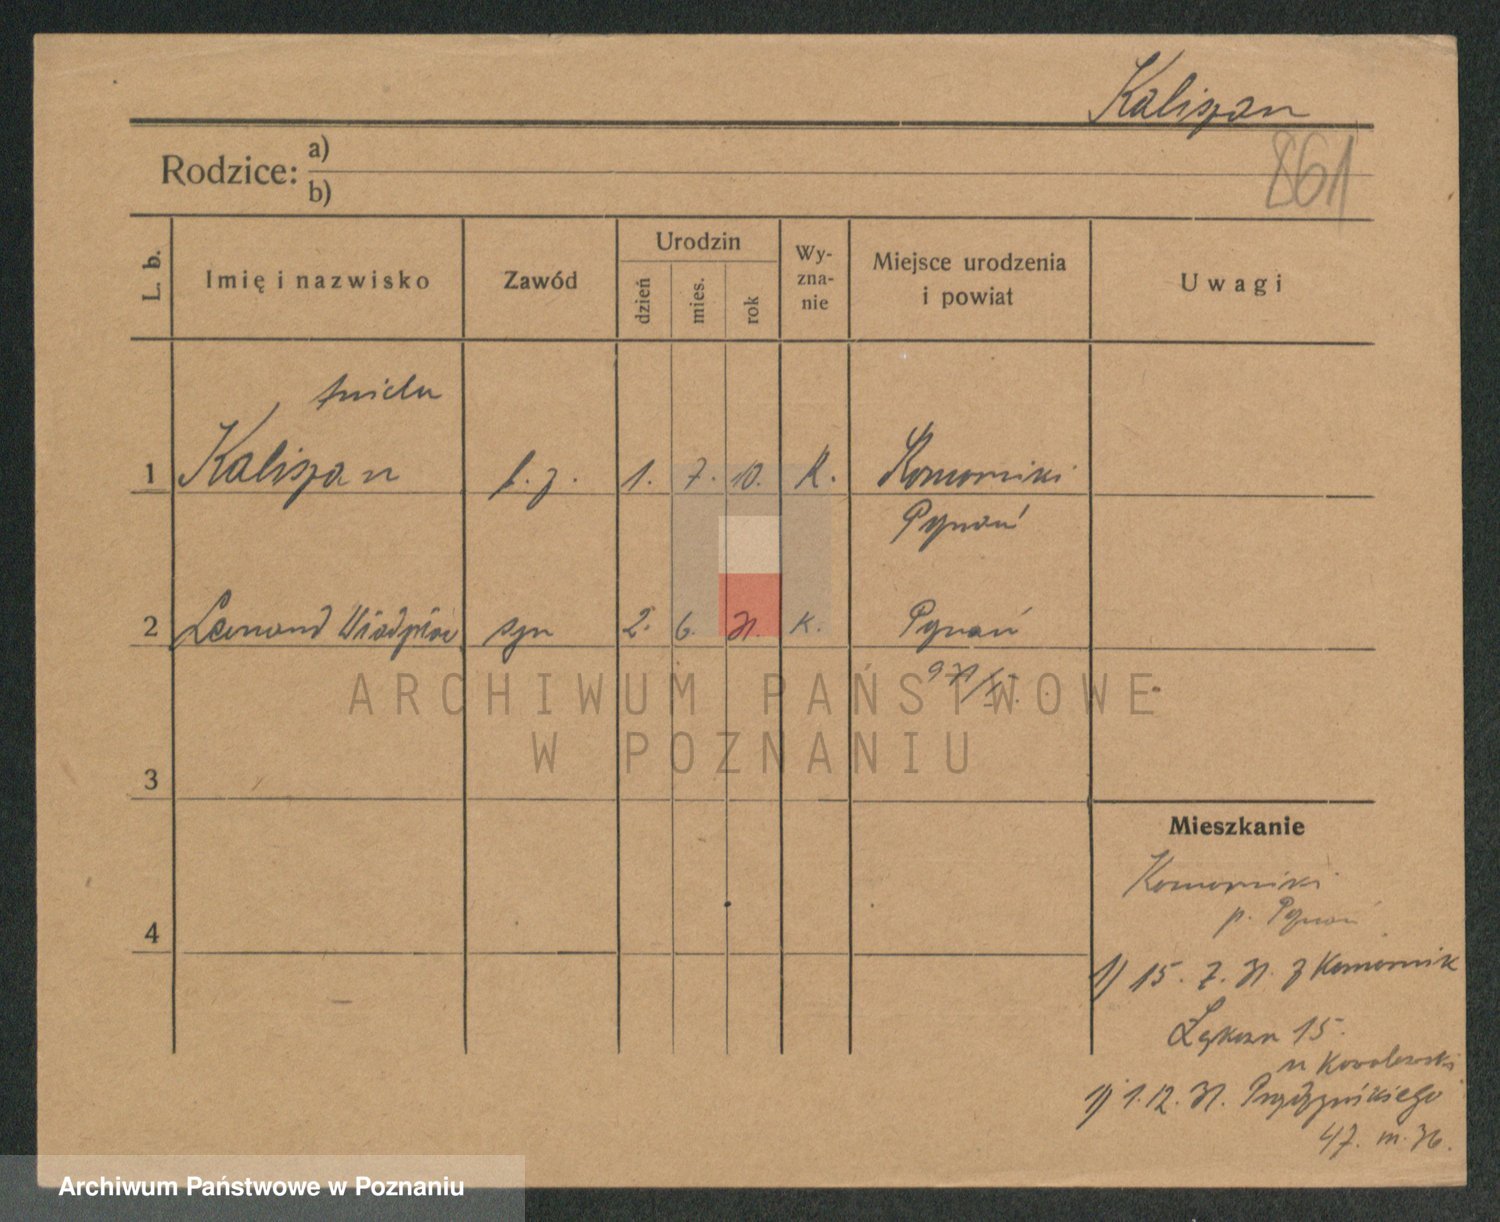 Kaliszan
861
Rodzice: a)
b)
L. b.
Imię i nazwisko
Zawód
Urodzin
dzień
mies.
rok
Wy-
zna-
nie
Miejsce urodzenia
i powiat
Uwagi
1 Kaliszan 1. 7. 10. K. Komorniki
Poznań
2 syn 2. 6. 31. k. Poznań
ARCHIWUM PAŃSTWOWE
W POZNANIU
3
4
Mieszkanie
Komorniki
p. Poznań
1) 15. 7. 31. z Komornik
Łąkowa 15.
u Kowalewski
1) 1.12. 31.
47. m. 36.
Archiwum Państwowe w Poznaniu